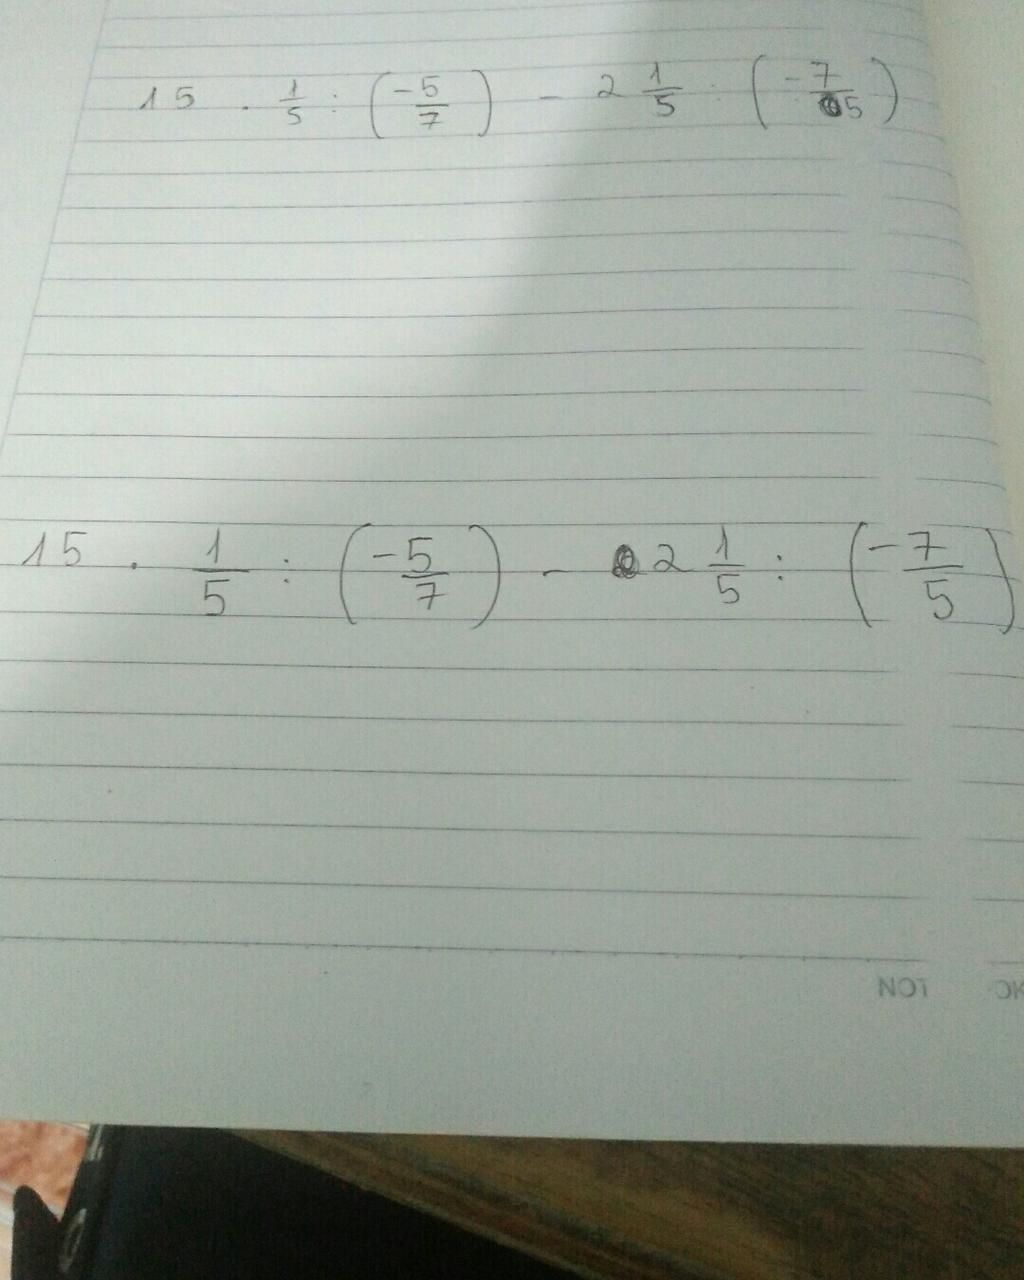 15 . 1/5 : (-5/7) - 2 1/5 : (-7/5)
15 . 1/5 : (-5/7) - 2 1/5 : (-7/5)